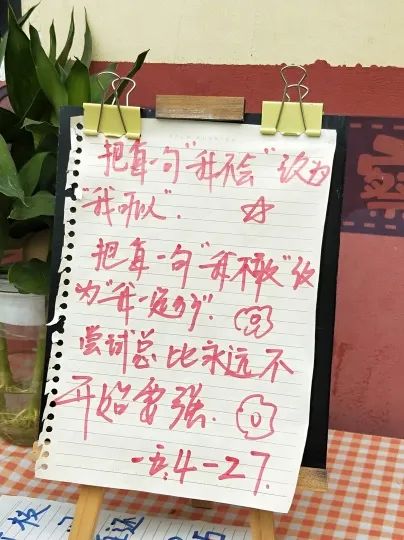 把每一句“我不会”改为
“我可以”.
把每一句“我不敢”改
为“我一定行”.
尝试总比永远不
开始要强.
4-27.